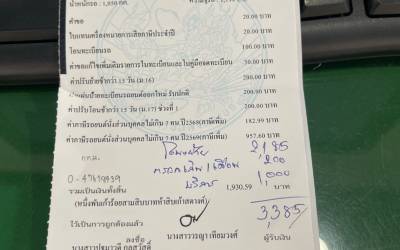 น้ำหนักรถ : 1,850 กก.
ค่าขอ 20.00 บาท
ใบแทนเครื่องหมายการเสียภาษีประจำปี 20.00 บาท
โอนทะเบียนรถ 100.00 บาท
ค่าขอแก้ไขเพิ่มเติมรายการในทะเบียนและใบคู่มือจดทะเบียน 50.00 บาท
ค่าปรับย้ายช้ากว่า 15 วัน (ม.16) 200.00 บาท
แผ่นป้ายทะเบียนรถยนต์ออกใหม่ รับปกติ 200.00 บาท
ค่าปรับโอนช้ากว่า 15 วัน (ม.17) ช่วงที่ 1 200.00 บาท
ค่าภาษีรถยนต์นั่งส่วนบุคคลไม่เกิน 7 คน ปี2568(ภาษีเพิ่ม) 182.99 บาท
ค่าภาษีรถยนต์นั่งส่วนบุคคลไม่เกิน 7 คน ปี2569(ภาษีเพิ่ม) 957.60 บาท
2,185
กทม. 200
บริการ 1,000
รวมเป็นเงินทั้งสิ้น 1,930.59 บาท
(หนึ่งพันเก้าร้อยสามสิบบาทห้าสิบเก้าสตางค์)
3,385
ไว้เป็นการถูกต้องแล้ว
ลงชื่อ ผู้รับเงิน